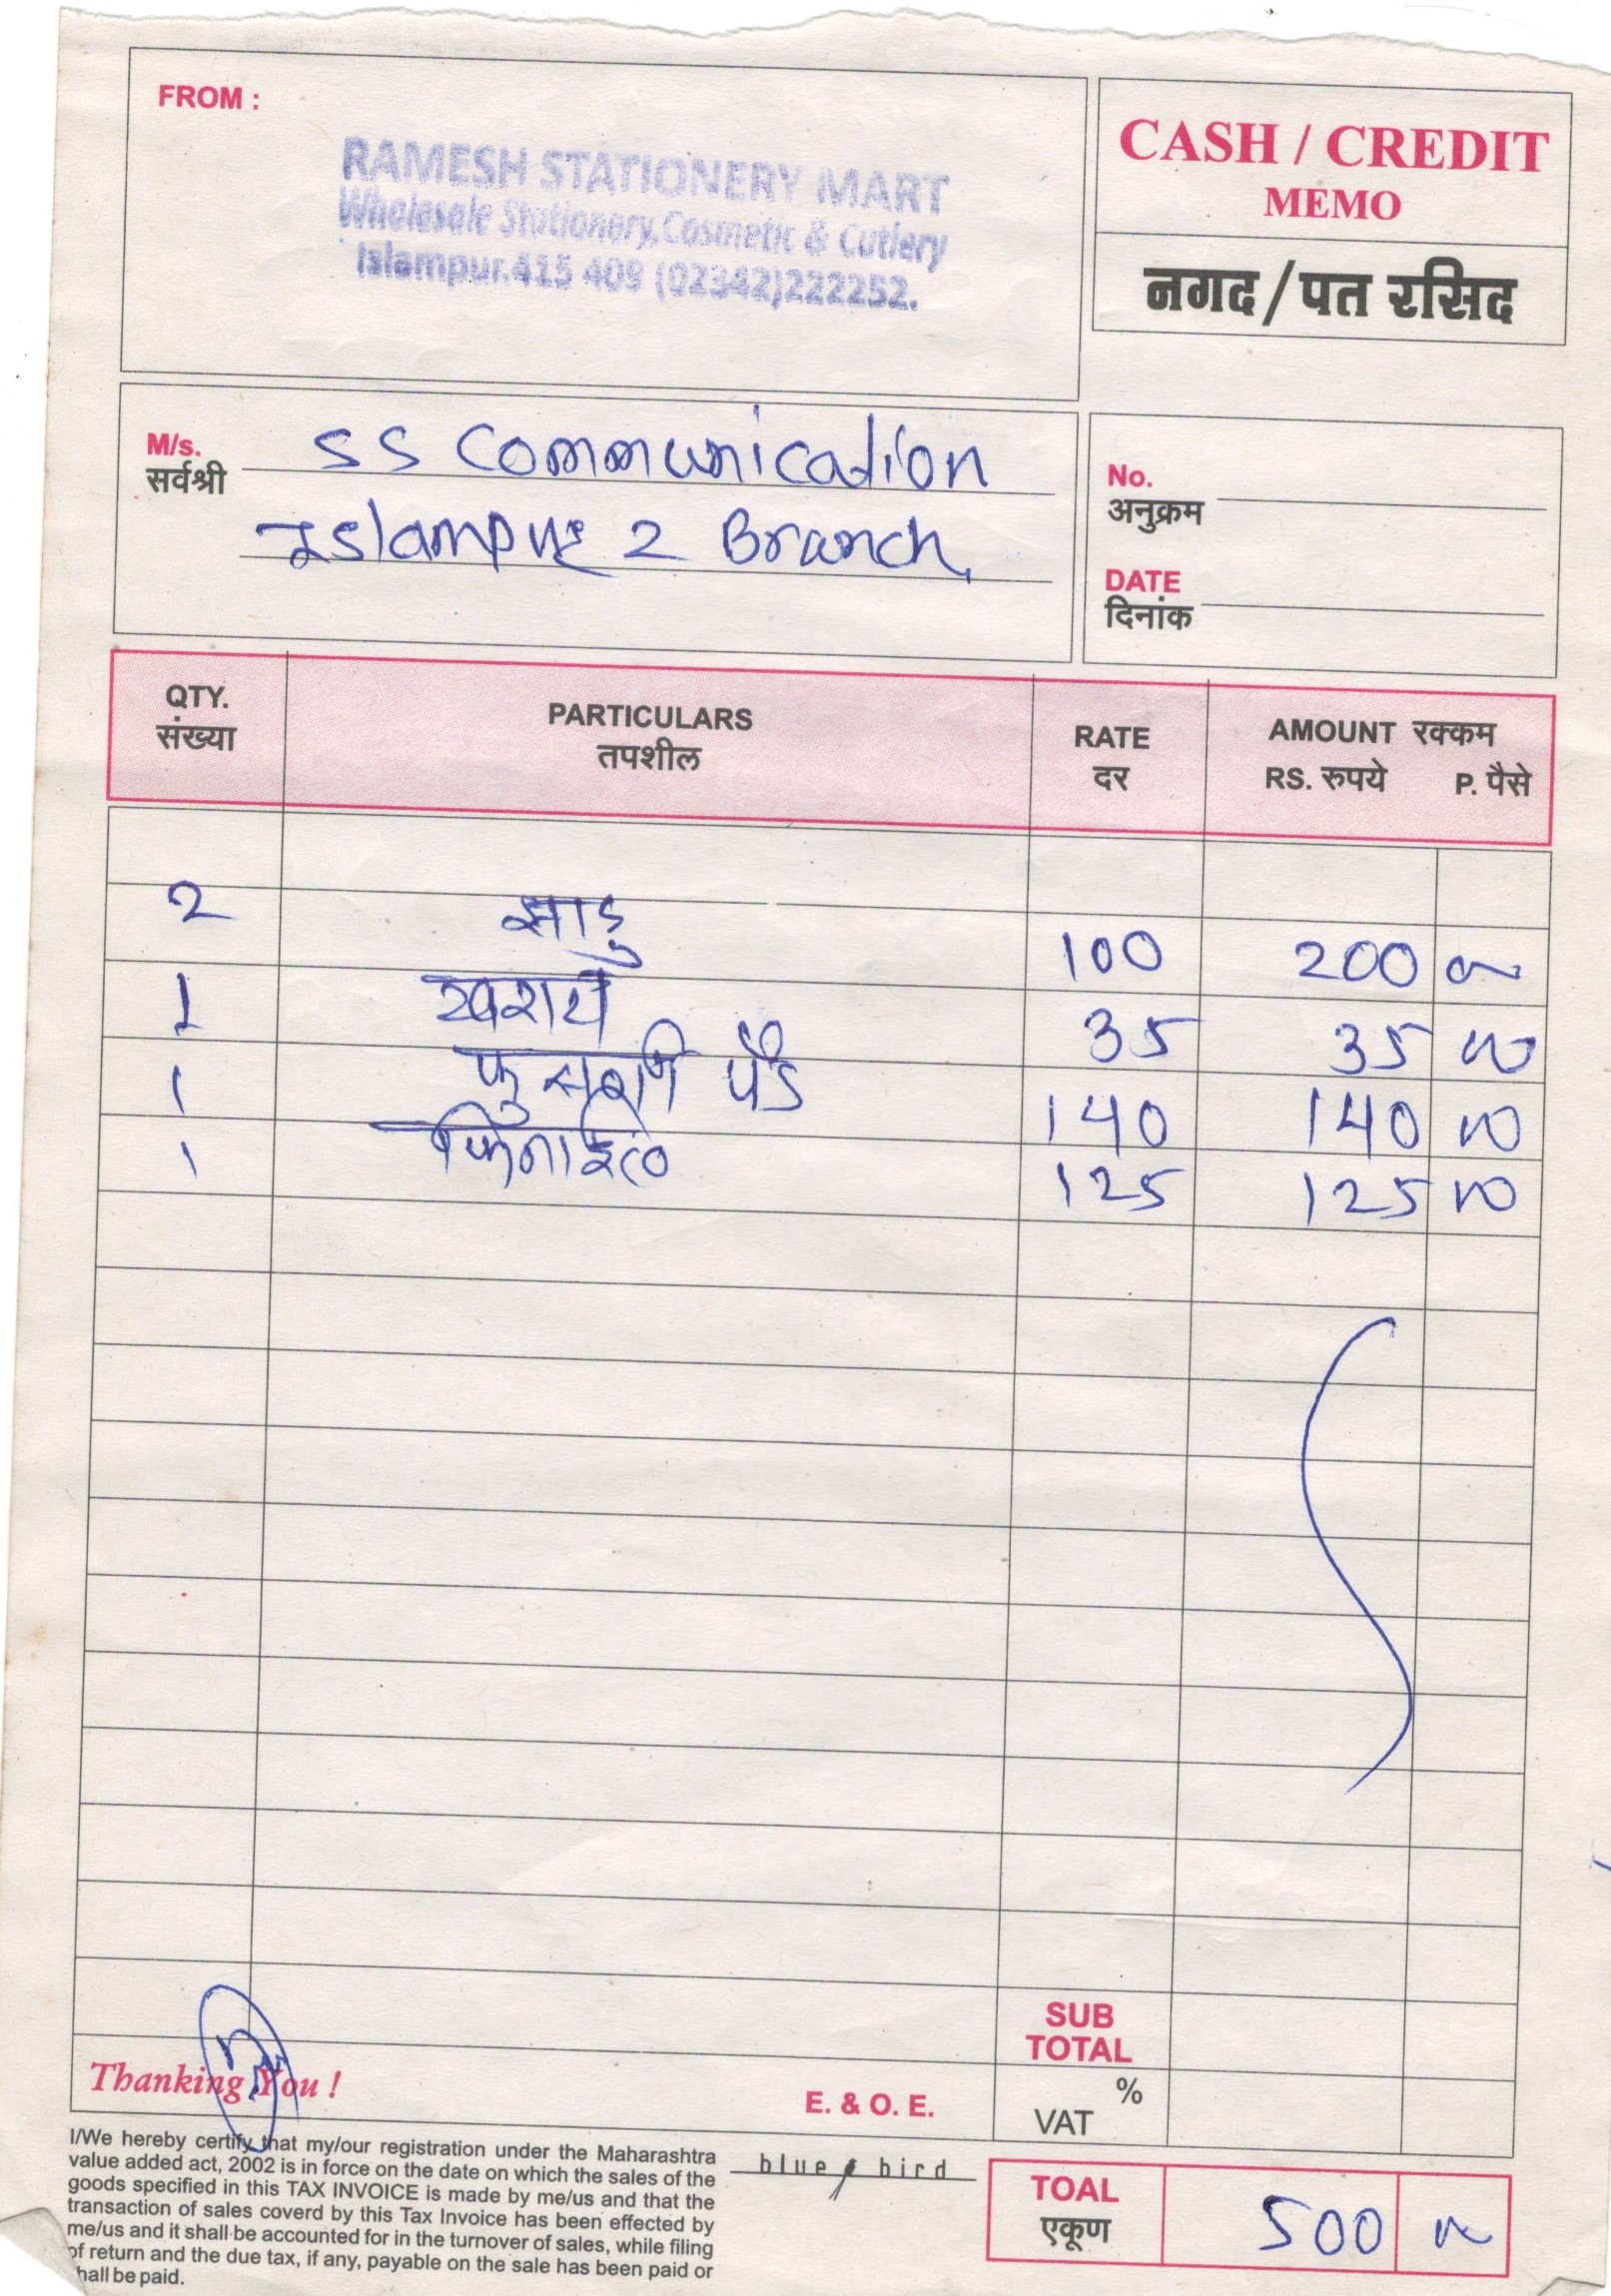 FROM :
RAMESH STATIONERY MART
Wholesale Stationery,Cosmetic & Cutlery
Islampur.415 409 (02342)222252.
CASH / CREDIT
MEMO
नगद/पत रसिद
M/s. SS Communication
सर्वश्री
Islampur 2 Branch
No.
अनुक्रम
DATE
दिनांक
QTY. PARTICULARS RATE AMOUNT रक्कम
संख्या तपशील दर RS. रुपये P. पैसे
2 झाडु 100 200 00
1 खराटे 35 35 00
1 फुसरणी पॅड 140 140 00
1 फिनाईल 125 125 00
SUB
TOTAL
Thanking You !
E. & O. E.
%
VAT
I/We hereby certify that my/our registration under the Maharashtra
value added act, 2002 is in force on the date on which the sales of the
goods specified in this TAX INVOICE is made by me/us and that the
transaction of sales coverd by this Tax Invoice has been effected by
me/us and it shall be accounted for in the turnover of sales, while filing
of return and the due tax, if any, payable on the sale has been paid or
hall be paid.
blue bird
TOAL
एकूण 500 00